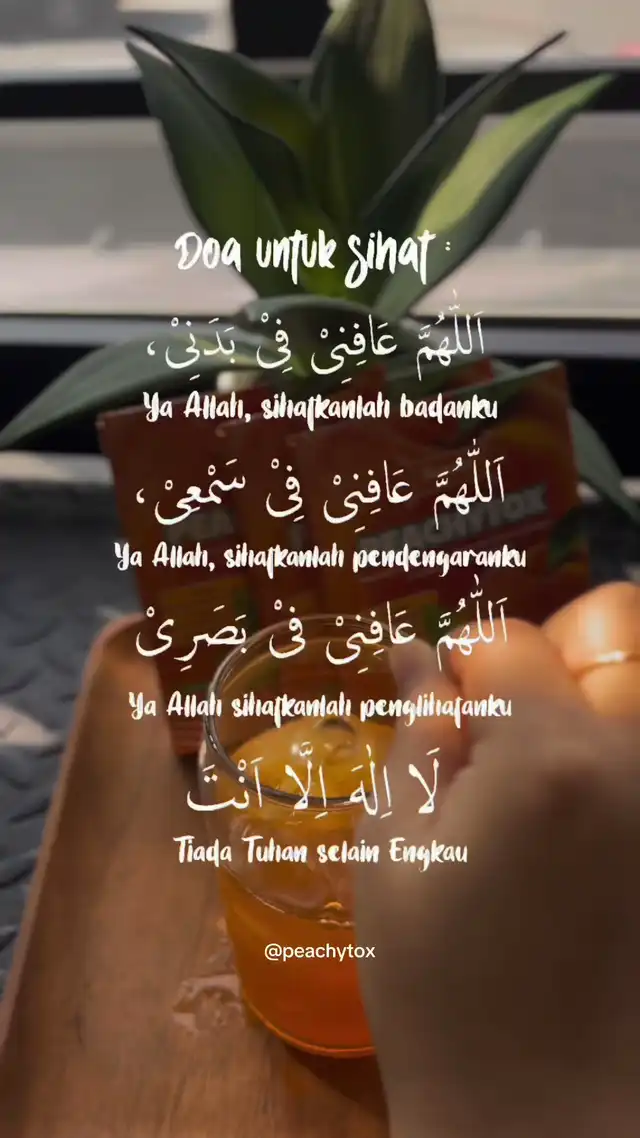 Doa untuk Sihat :
اَللّٰهُمَّ عَافِنِىْ فِىْ بَدَنِىْ،
Ya Allah, sihatkanlah badanku
اَللّٰهُمَّ عَافِنِىْ فِىْ سَمْعِىْ،
Ya Allah, sihatkanlah pendengaranku
PEACHYTOX
اَللّٰهُمَّ عَافِنِىْ فىْ بَصَرِىْ
Ya Allah sihatkanlah penglihatanku
لَا اِلٰهَ اِلَّا اَنْتَ
Tiada Tuhan selain Engkau
@peachytox